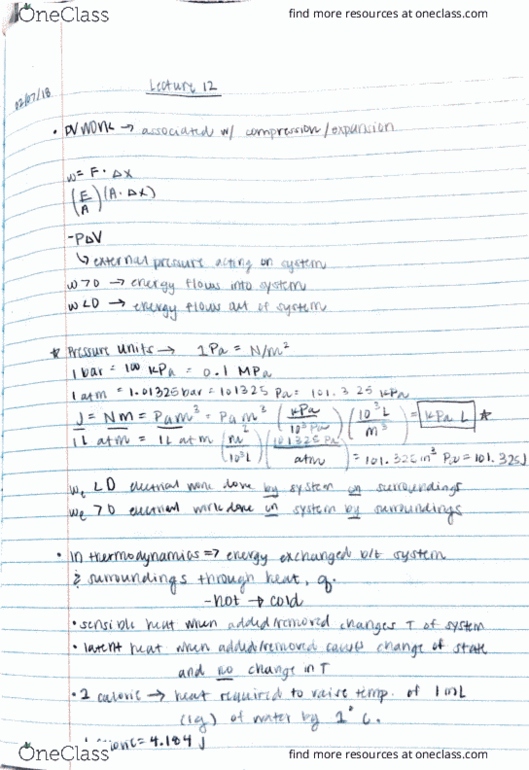 OneClass find more resources at oneclass.com
02/07/18
Lecture 12
• PV work → associated w/ compression/expansion
w = F · Δx
(F/A)(A · Δx)
-PΔV
↳ external pressure acting on system
w>0 → energy flows into system
w<0 → energy flows out of system
* Pressure units → 1Pa = N/m²
1 bar = 100 kPa = 0.1 MPa
1 atm = 1.01325 bar = 101325 Pa = 101.325 kPa
J = Nm = Pa m³ = Pa m³ (kPa/10³ Pa)(10³ L/m³) = kPa L *
1L atm = 1L atm (m³/10³L)(101325 Pa/atm) = 101.325 m³ Pa = 101.325J
we < 0 electrical work done by system on surroundings
we > 0 electrical work done on system by surroundings
• In thermodynamics => energy exchanged b/t system
& surroundings through heat, q.
-hot → cold
• sensible heat when added/removed changes T of system
• latent heat when added/removed causes change of state
and no change in T
• 1 calorie → heat required to raise temp. of 1mL
(1g) of water by 1° C.
= 4.184 J
OneClass find more resources at oneclass.com